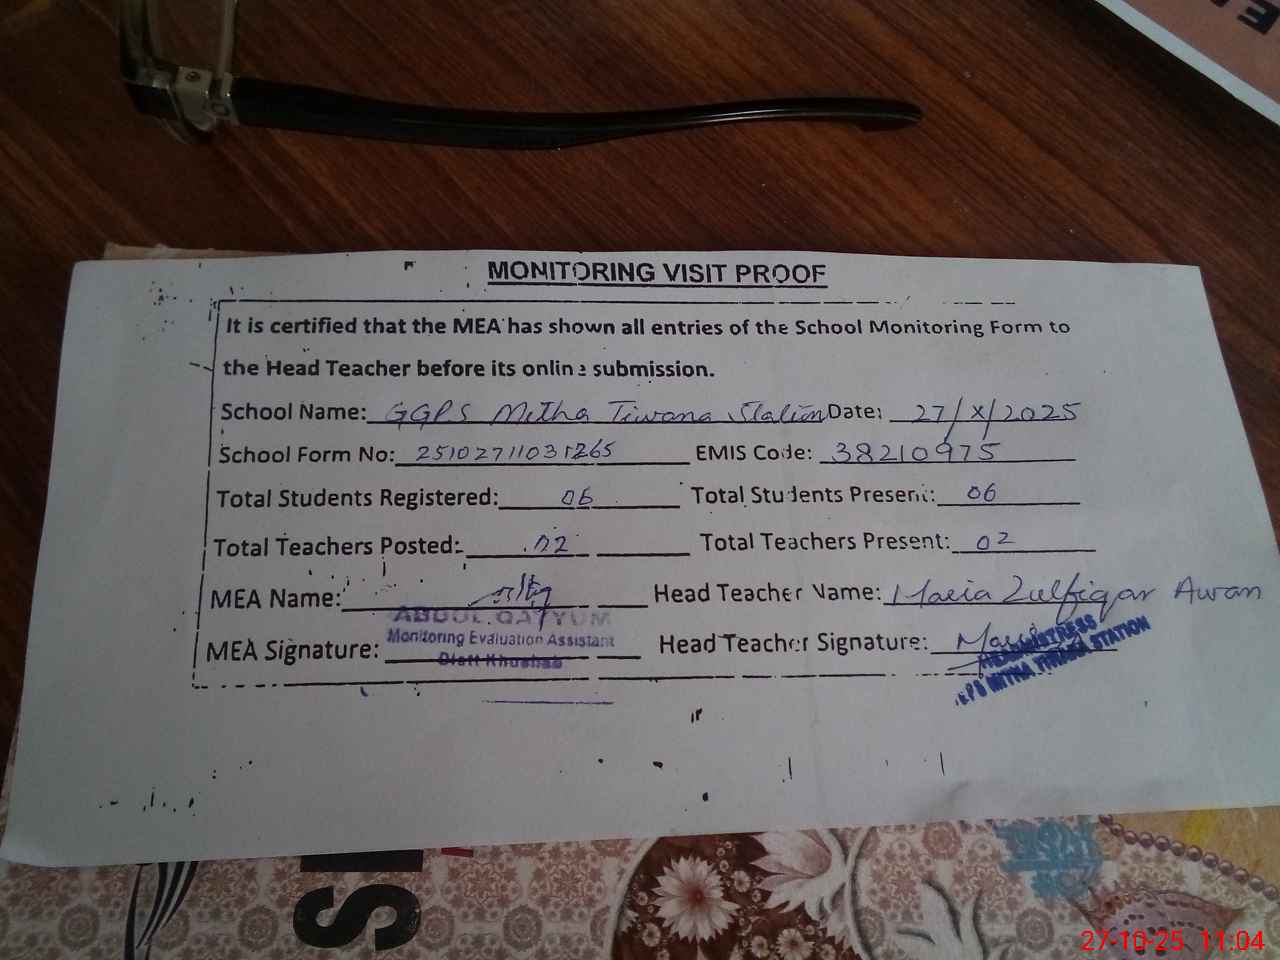 MONITORING VISIT PROOF
It is certified that the MEA has shown all entries of the School Monitoring Form to
the Head Teacher before its online submission.
School Name: GGPS Mitha Tiwana Station Date: 27/X/2025
School Form No: 25102711031265 EMIS Code: 38210975
Total Students Registered: 06 Total Students Present: 06
Total Teachers Posted: 02 Total Teachers Present: 02
MEA Name: Head Teacher Name: Maria Zulfiqar Awan
ABDUL QAYYUM
Monitoring Evaluation Assistant
MEA Signature: Head Teacher Signature:
Distt Khushab
HEADMISTRESS
GPS MITHA TIWANA STATION
27-10-25 11:04